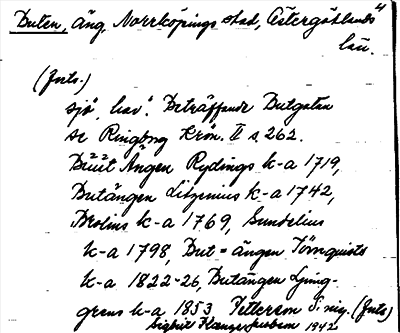 Buten, äng, Norrköpings stad, Östergötlands 4
län.
(Forts.)
sjö, hav". Beträffande Butgatan
se Ringborg Krön. II s. 262.
Büüt Ängen Rydings k-a 1719,
Butängen Litzenius k-a 1742,
Brolins k-a 1769, Sundelius
k-a 1798, But=ängen Törnquists
k-a 1822-26, Butängen Ljung-
grens k-a 1853 Petterson S: ning. (Forts.)
1942